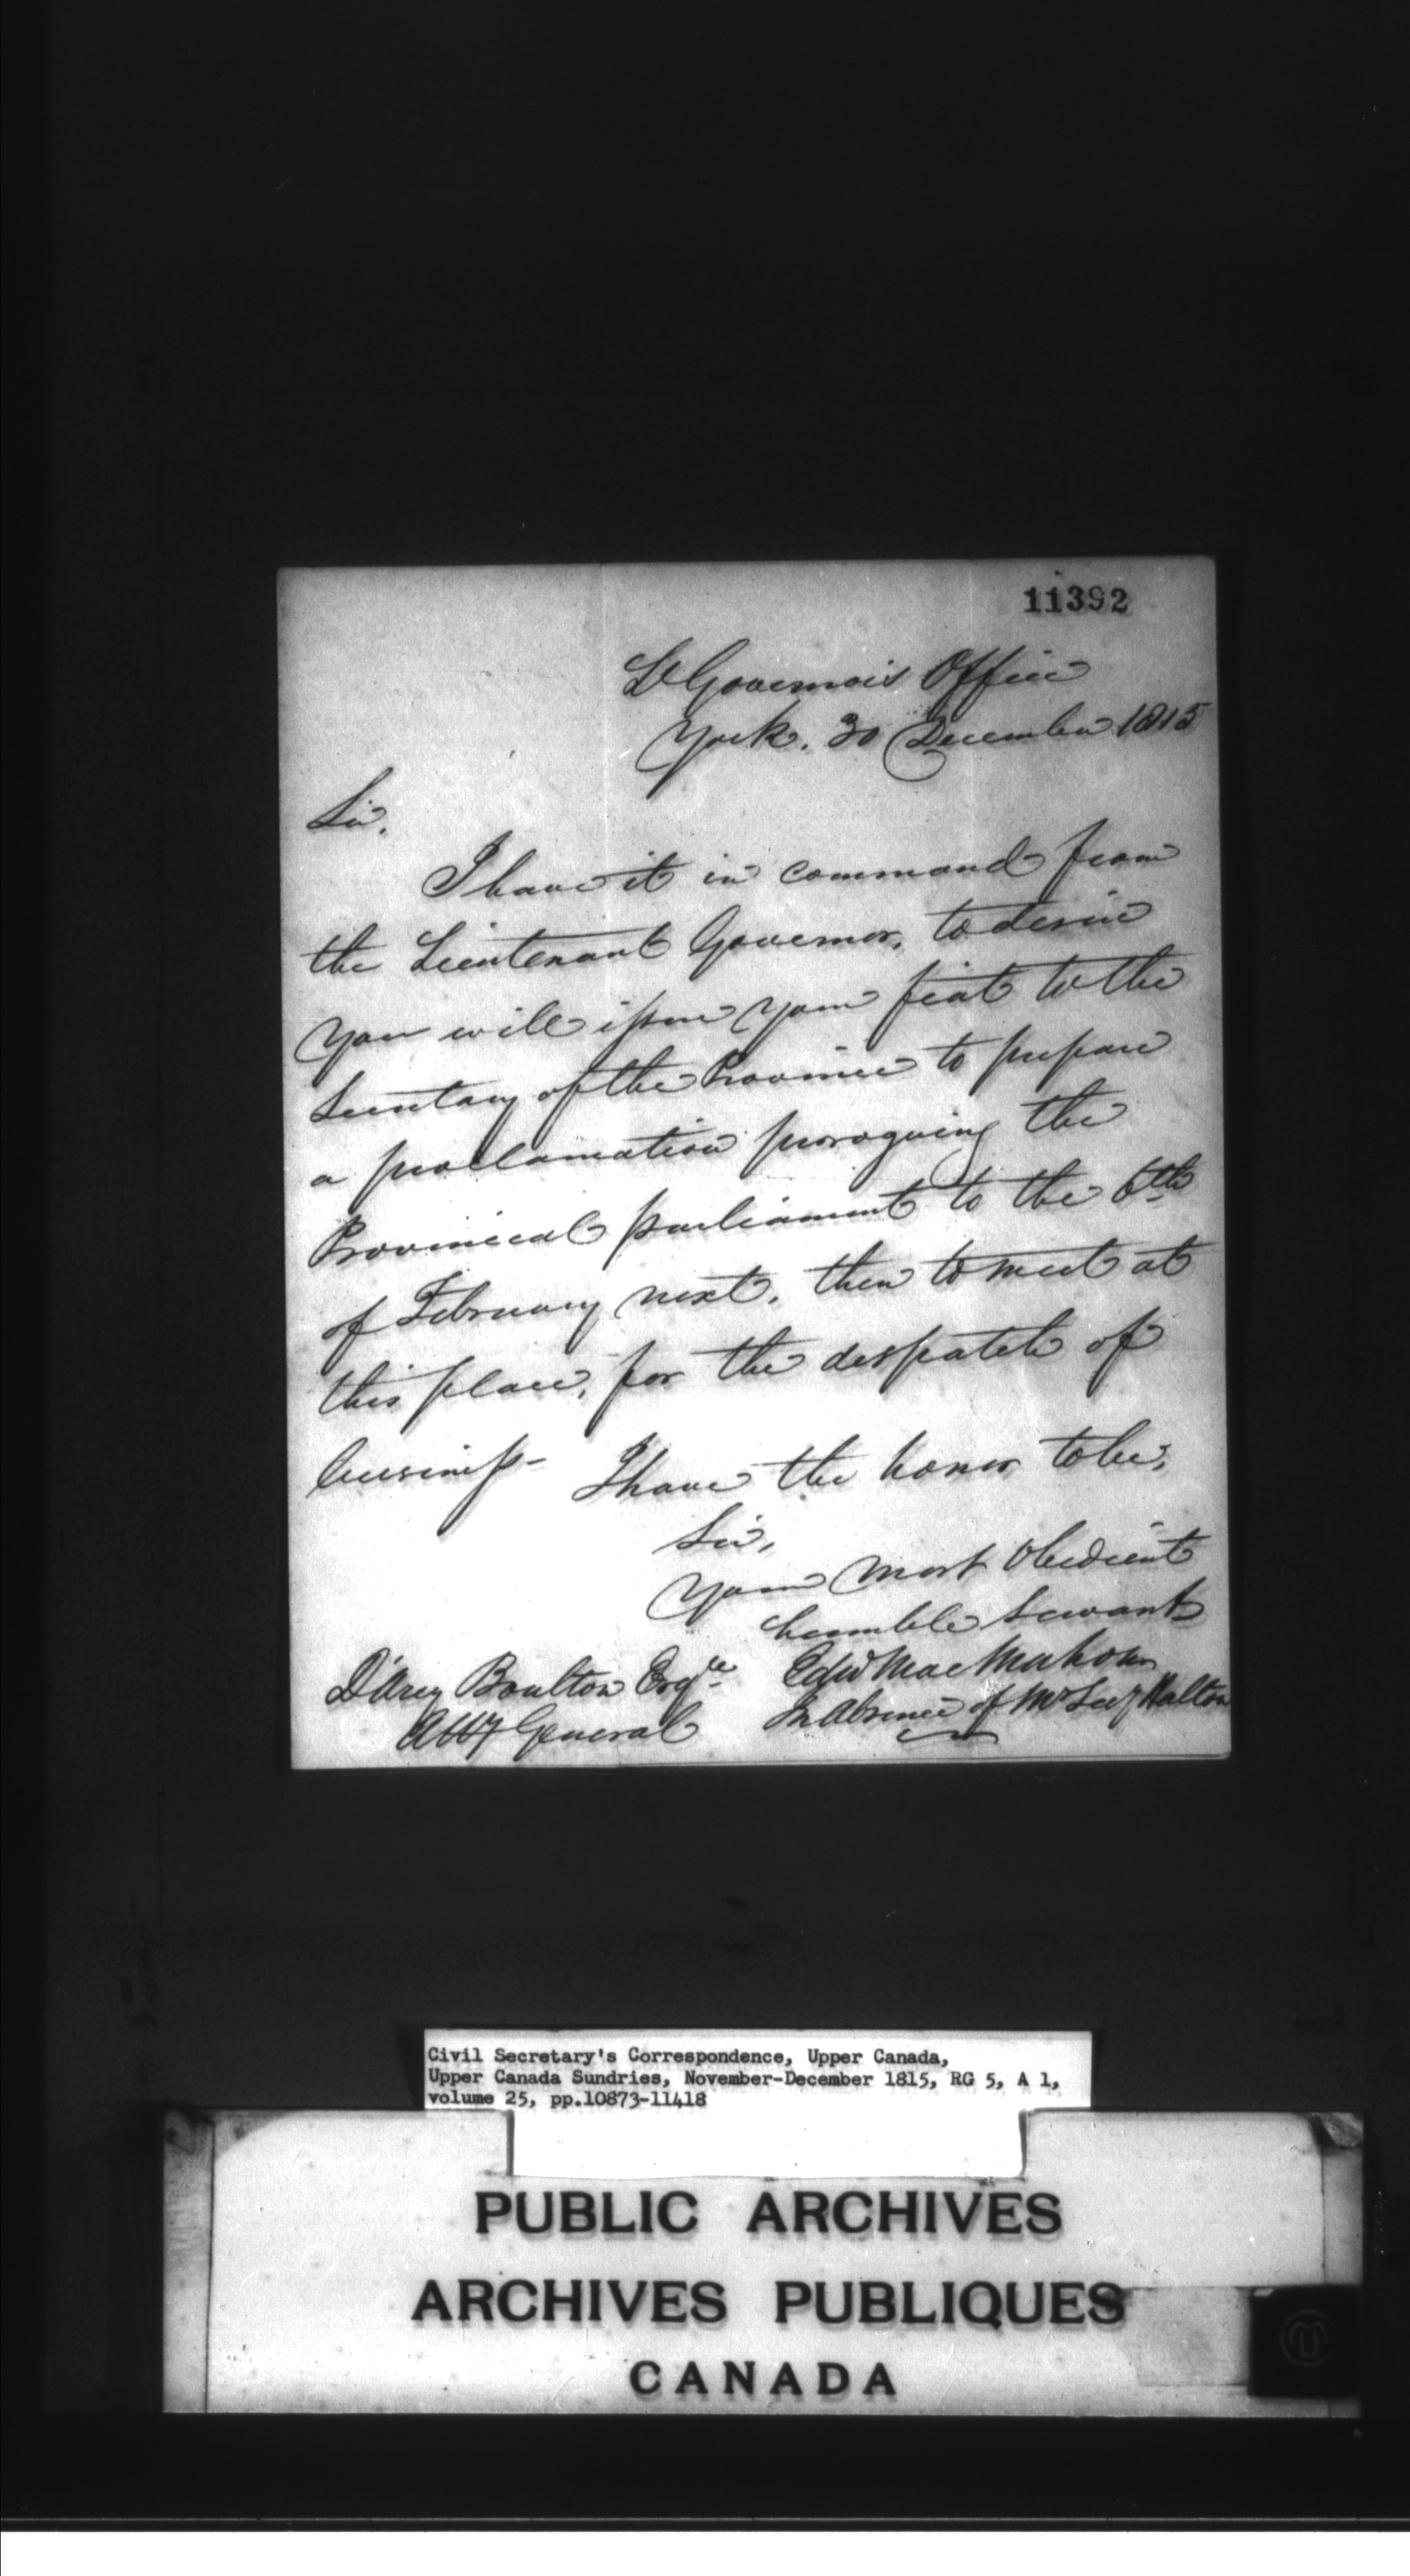 11392
Lt Governors Office
York. 30 December 1815
Sir,
I have it in command from
the Lieutenant Governor, to desire
you will issue your fiat to the
Secretary of the Province to prepare
a proclamation proroguing the
Provincial parliament to the 6th
of February next, then to meet at
this place, for the despatch of
business-
I have the honor to be,
Sir,
Your most Obedient
humble Servant
Edwd MacMahon
In Absence of Mr Secy Halton
D'Arcy Boulton Esqre
Atty General
Civil Secretary's Correspondence, Upper Canada,
Upper Canada Sundries, November-December 1815, RG 5, A 1,
volume 25, pp.10873-11418
PUBLIC ARCHIVES
ARCHIVES PUBLIQUES
CANADA